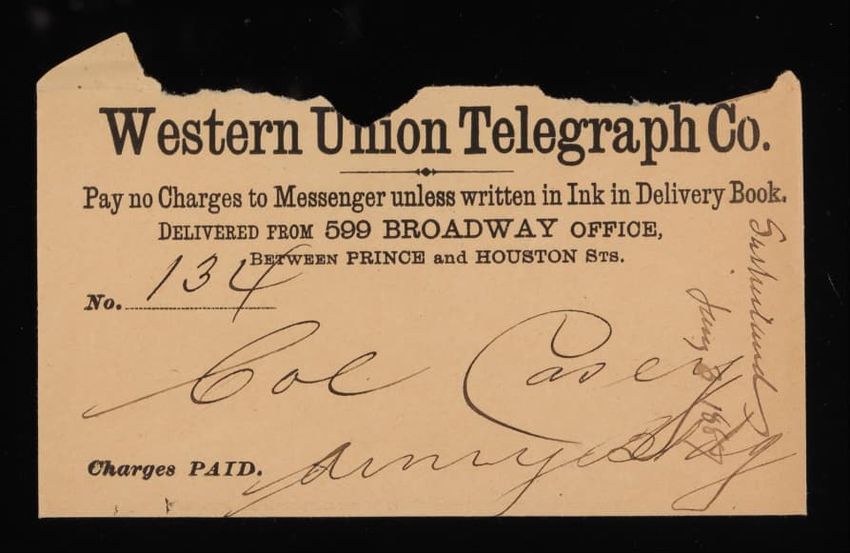 Western Union Telegraph Co.
Pay no Charges to Messenger unless written in Ink in Delivery Book.
DELIVERED FROM 599 BROADWAY OFFICE,
BETWEEN PRINCE and HOUSTON STS.
No. 134
Col Casey
Charges PAID.
Army Bldg
Sutherland